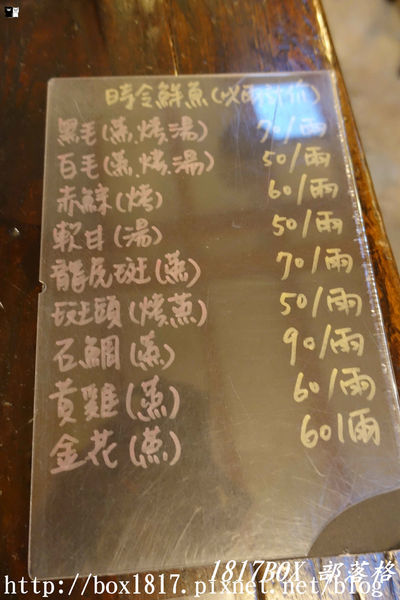 時令鮮魚(以兩計價)
黑毛(蒸.烤.湯) 70/兩
百毛(蒸.烤.湯) 50/兩
赤鯮(烤) 60/兩
軟甘(湯) 50/兩
龍虎斑(蒸) 70/兩
斑頭(烤蒸) 50/兩
石鯛(蒸) 90/兩
黃雞(蒸) 60/兩
金花(蒸) 60/兩
1817BOX 部落格
http://box1817.pixnet.net/blog